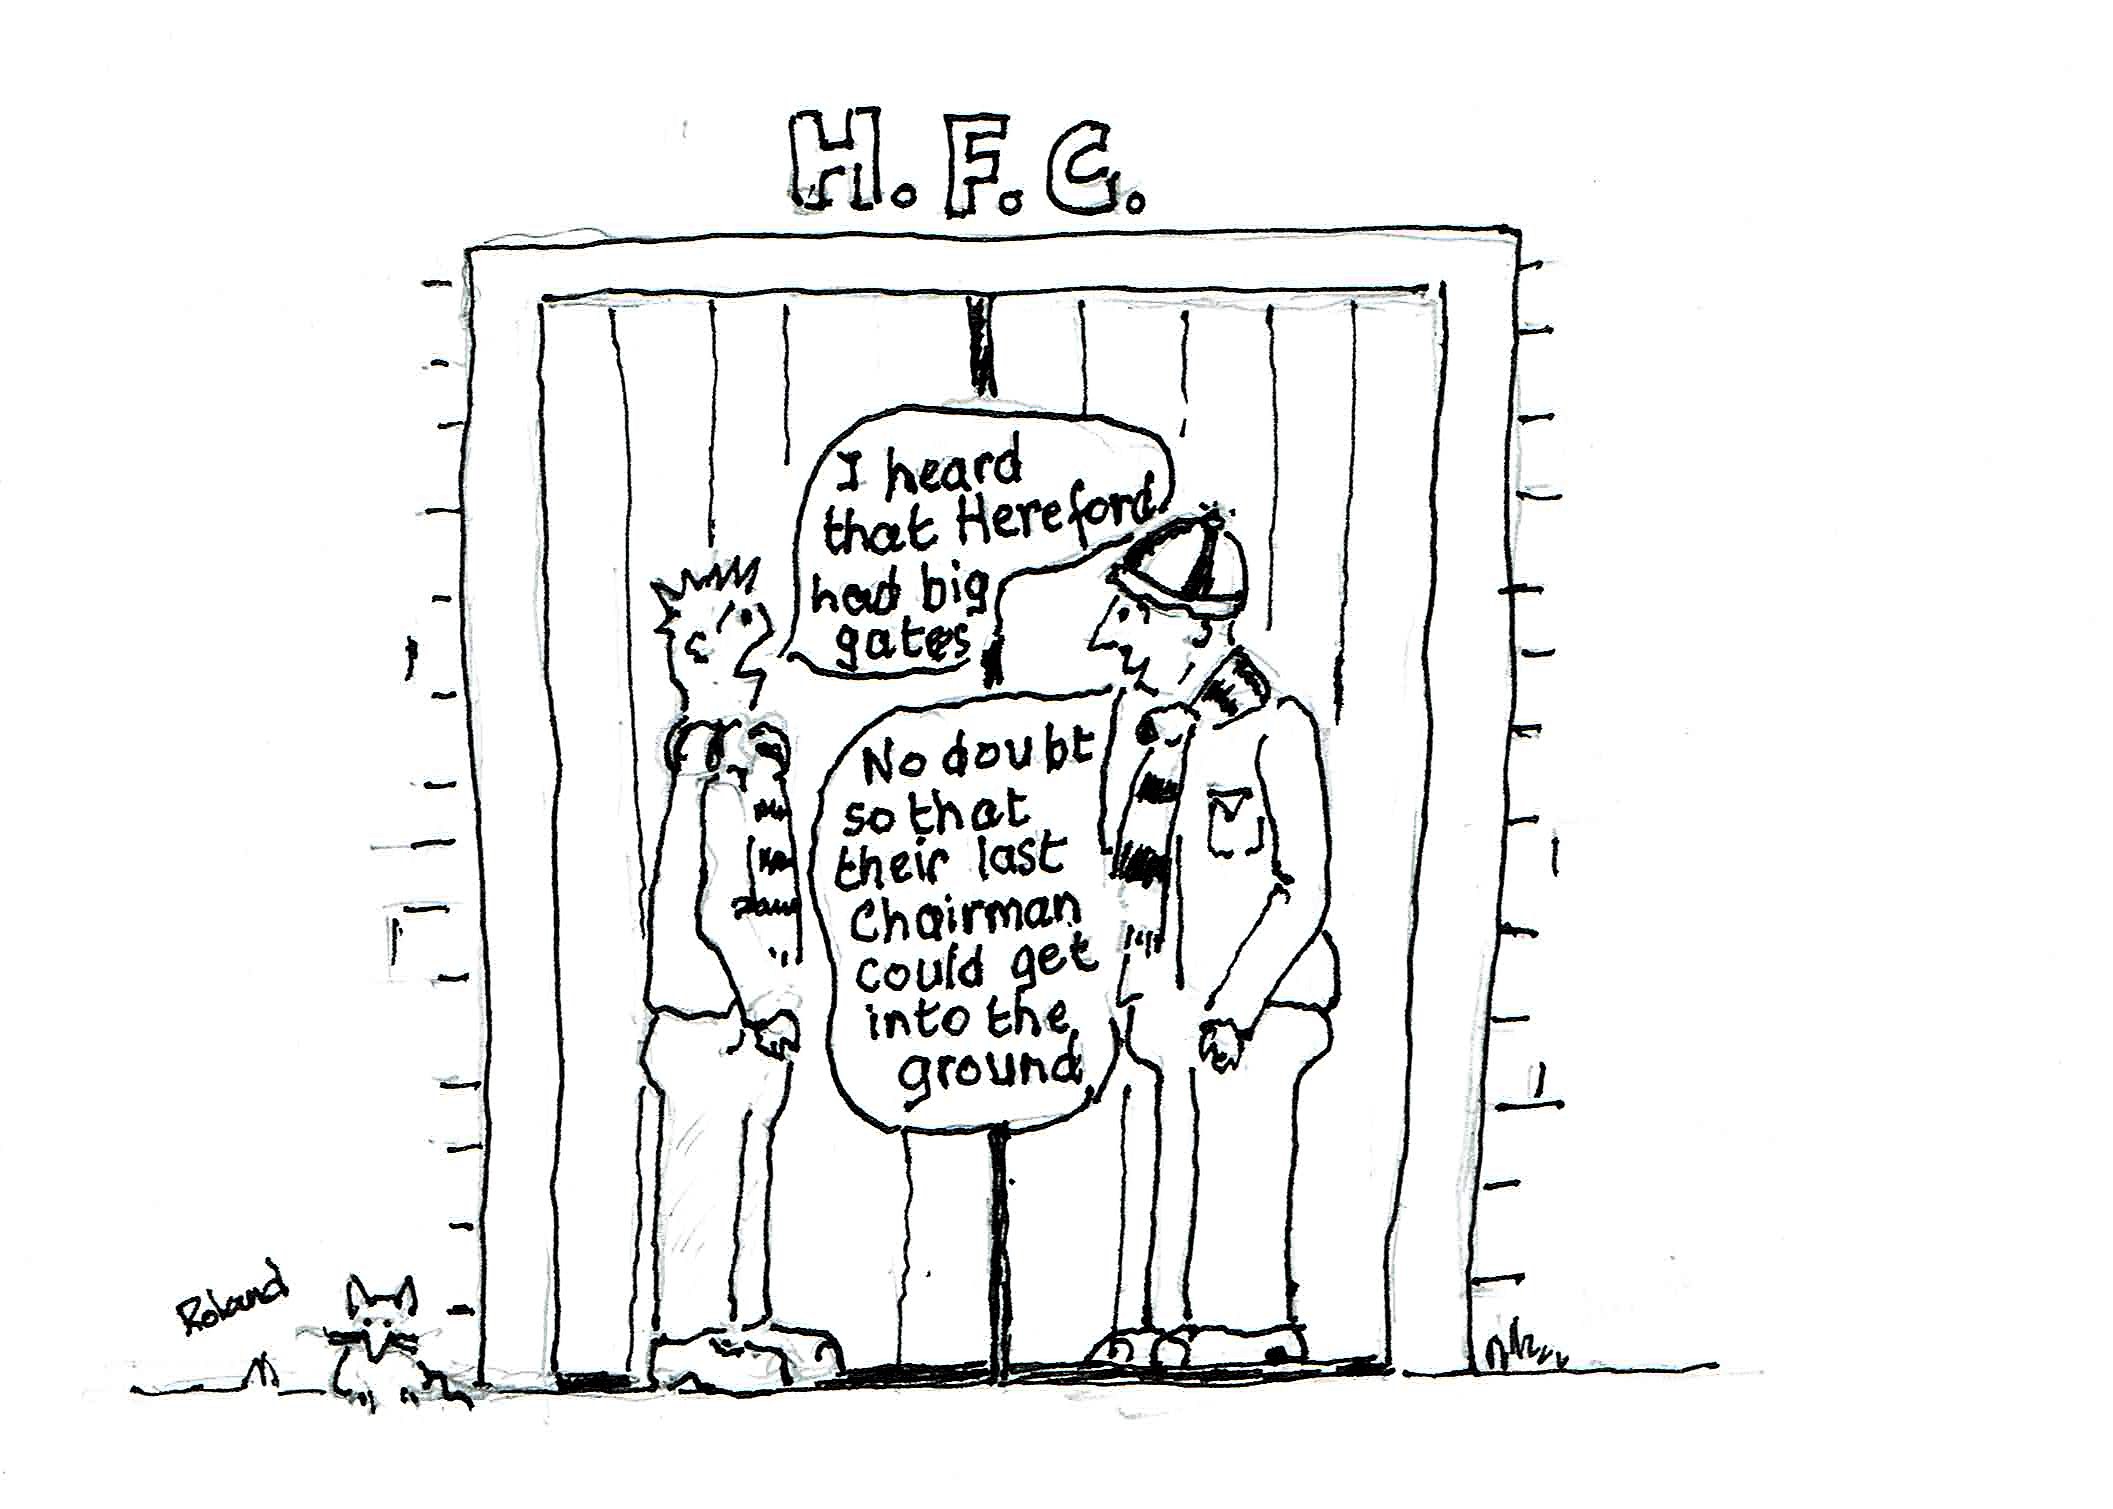 H.F.C.
I heard
that Hereford
had big
gates
No doubt
so that
their last
Chairman
could get
into the
ground
Roland